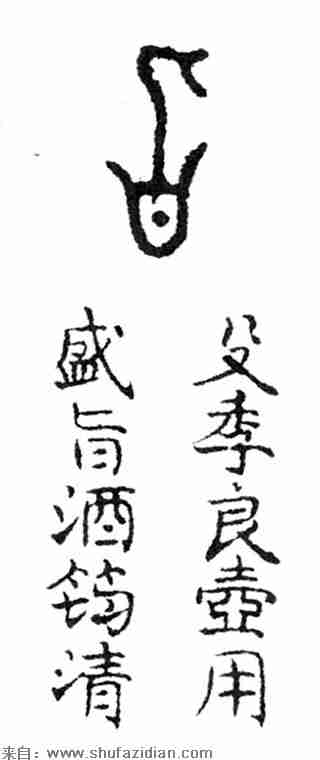 殳季良壺用
盛旨酒筠清
来自：www.shufazidian.com